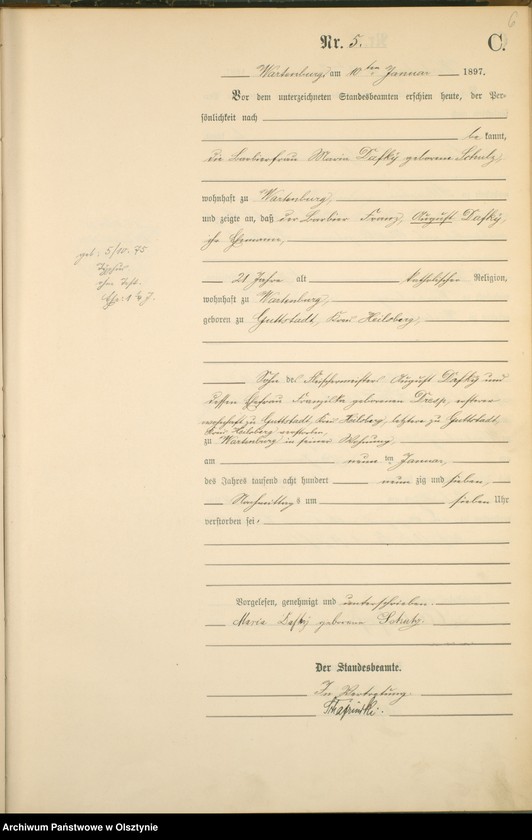 6
Nr. 5.
C.
Wartenburg, am 10ten Januar 1897.
Vor dem unterzeichneten Standesbeamten erschien heute, der Per-
sönlichkeit nach
be kannt,
die Barbierfrau Maria Dafky geborene Schulz,
wohnhaft zu Wartenburg,
und zeigte an, daß der Barbier Franz, August Dafky,
ihr Ehemann,
21 Jahre alt katholischer Religion,
wohnhaft zu Wartenburg,
geboren zu Guttstadt, Kreis Heilsberg,
geb: 5/10. 75
Typhus
Sohn des Fleischermeisters August Dafky und
dessen Ehefrau Franziska geborenen, ersterer
wohnhaft zu Guttstadt, Kreis Heilsberg, letztere zu Guttstadt,
Kreis Heilsberg verstorben,
zu Wartenburg in seiner Wohnung,
am neunten Januar,
des Jahres tausend acht hundert neun zig und sieben,
Nachmittags um sieben Uhr
verstorben sei.
Vorgelesen, genehmigt und unterschrieben.
Maria Dafky geborene Schulz
Der Standesbeamte.
In Vertretung
Archiwum Państwowe w Olsztynie